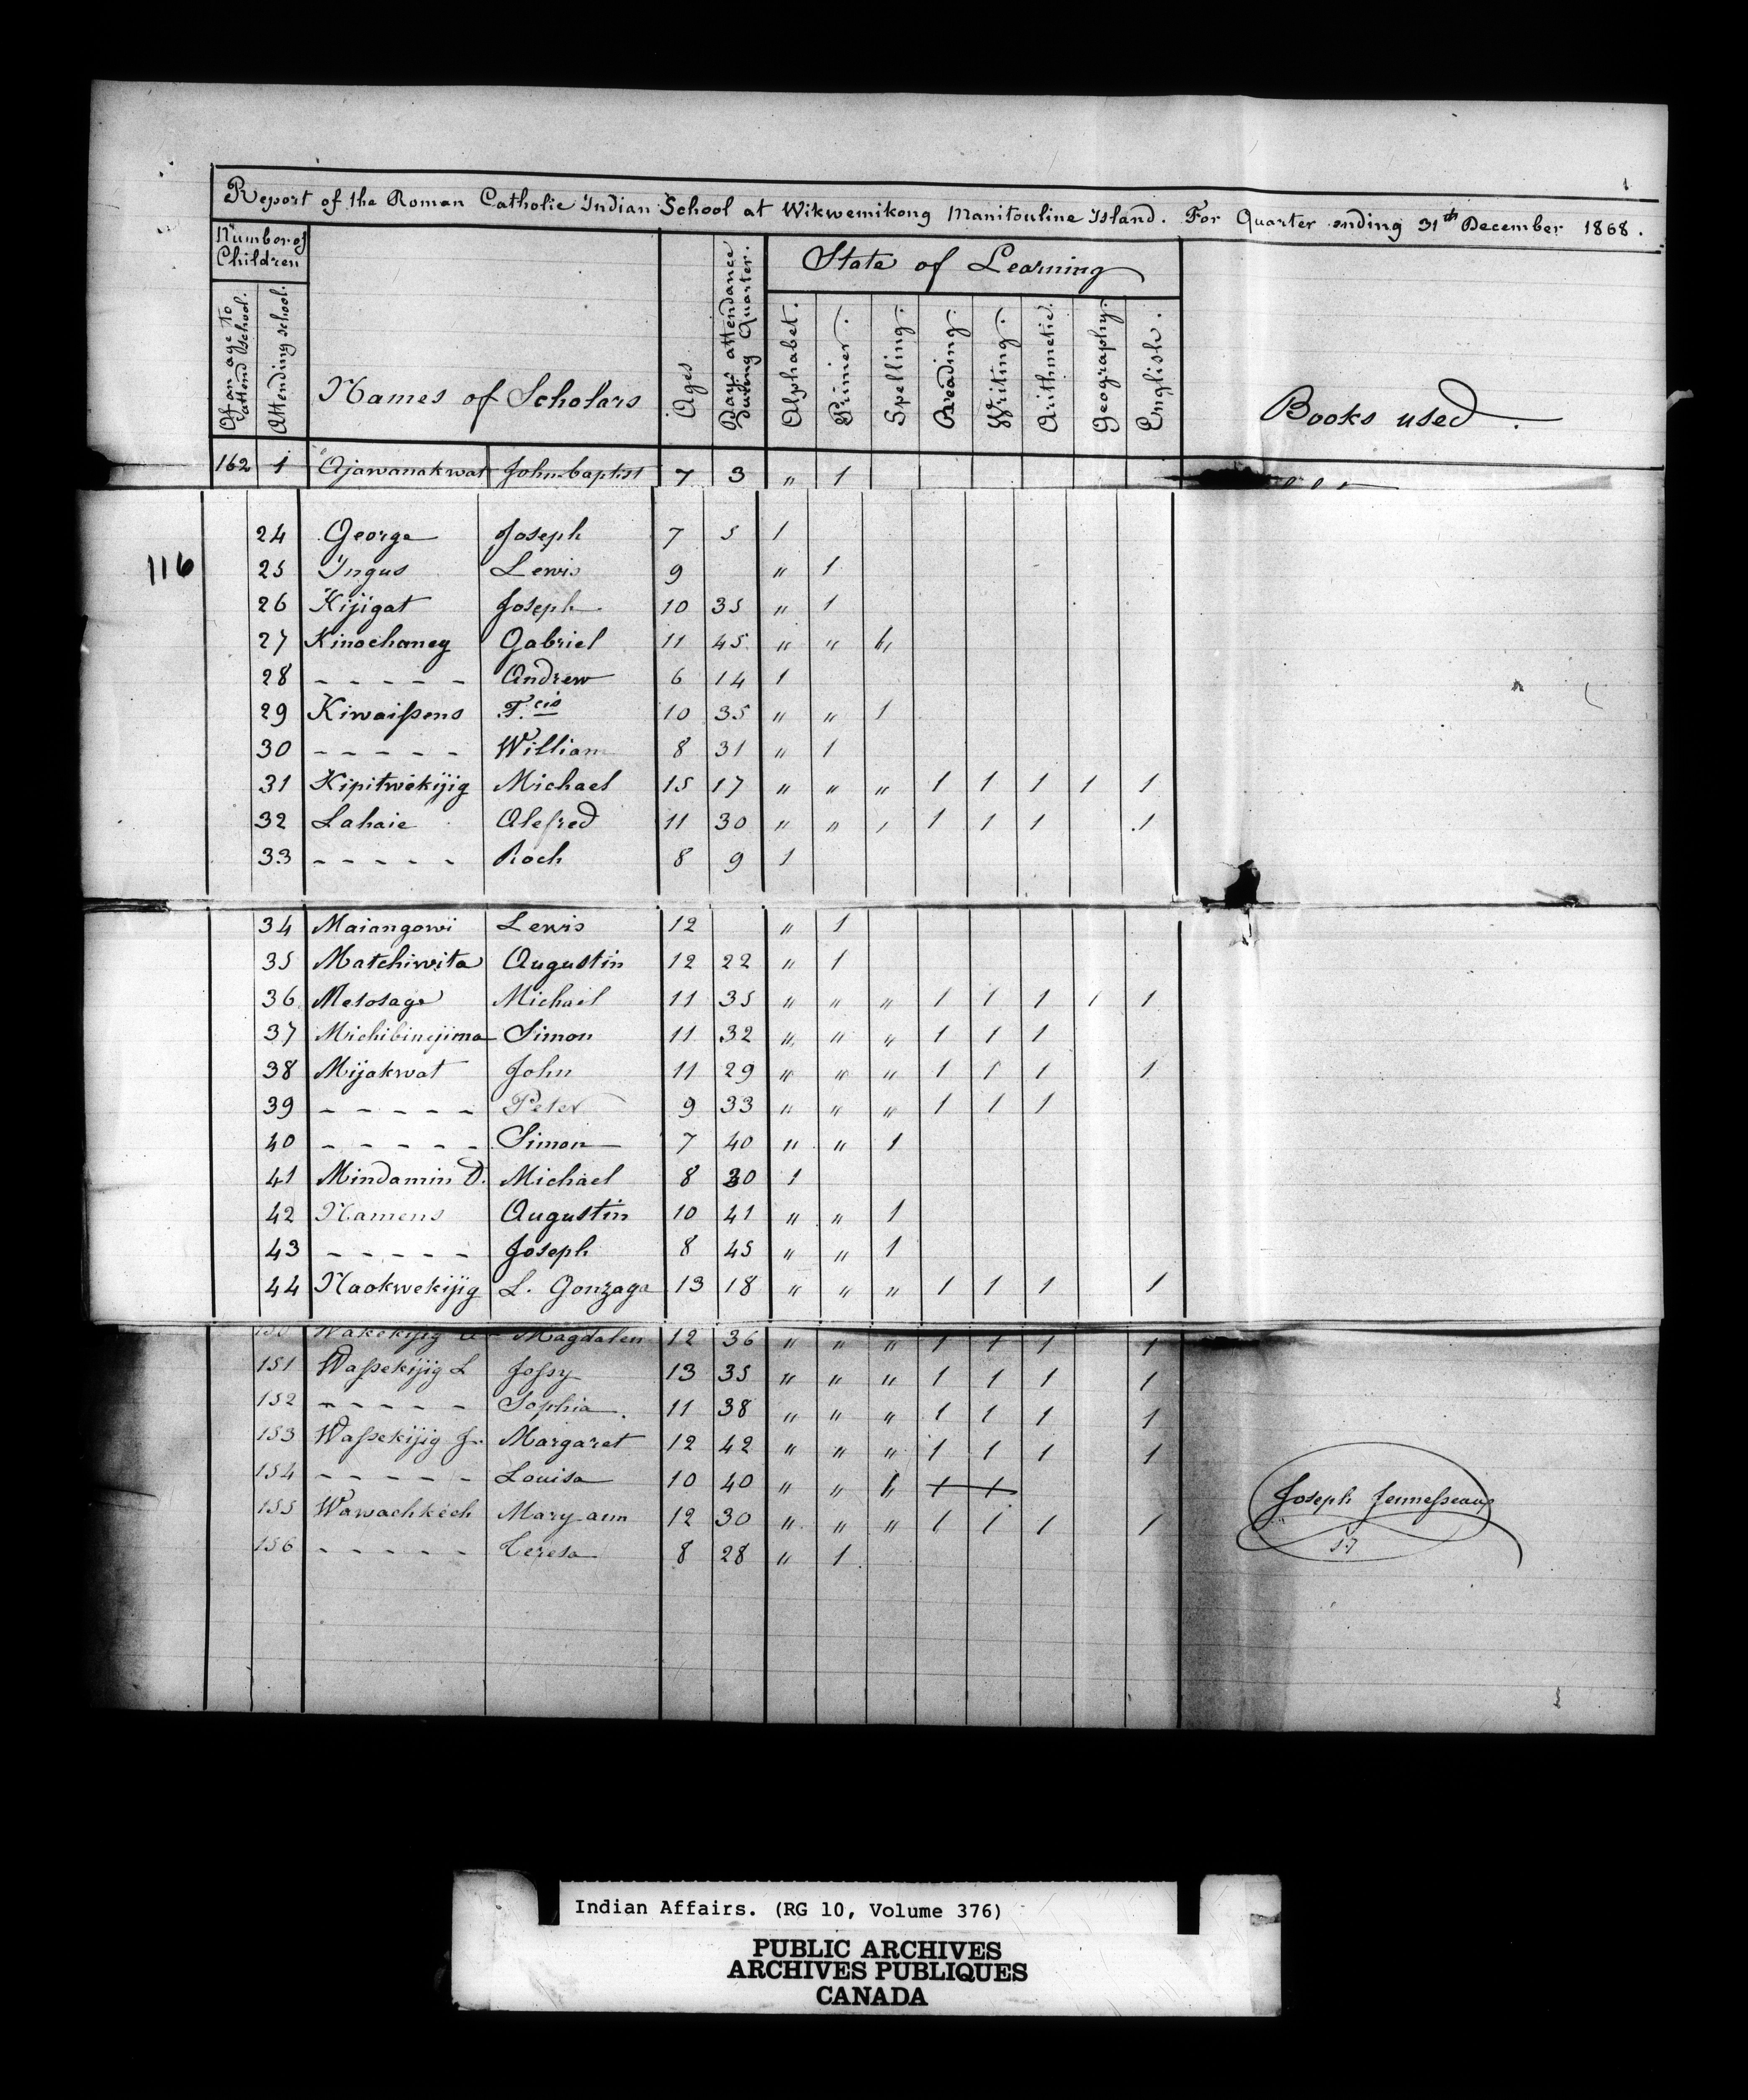 Report of the Roman Catholic Indian School at Wikwemikong Manitouline Island. For Quarter ending 31th December 1868.
Number of Children
State of Learning
Of an age to attend school.
Attending school.
Names of Scholars
Ages
Days attendance during Quarter.
Alphabet.
Primier.
Spelling.
Reading.
Writing.
Arithmetic.
Geography.
English.
Books used.
162 1 Ajawanakwat John-baptist 7 3 " 1
116
24 George Joseph 7 5 1
25 Ingus Lewis 9 " 1
26 Kijigat Joseph 10 35 " 1
27 Kinochameg Gabriel 11 45 " "
28 - - - - - Andrew 6 14 1
29 Kiwaissens F.cis 10 35 " " 1
30 - - - - - William 8 31 " 1
31 Kipitwekijig Michael 15 17 " " " 1 1 1 1 1
32 Lahaie Alefred 11 30 " " " 1 1 1 1
33 - - - - - Roch 8 9 1
34 Maiangowi Lewis 12 " 1
35 Matchiwita Augustin 12 22 " 1
36 Mesosage Michael 11 35 " " " 1 1 1 1 1
37 Michibinijima Simon 11 32 " " " 1 1 1
38 Mijakwat John 11 29 " " " 1 1 1 1
39 - - - - - Peter 9 33 " " " 1 1 1
40 - - - - - Simon 7 40 " " 1
41 Mindamin D. Michael 8 30 1
42 Namens Augustin 10 41 " " 1
43 - - - - - Joseph 8 45 " " 1
44 Naokwekijig L. Gonzaga 13 18 " " " 1 1 1 1
Wakekijig Magdalen 12 36 " " " 1 1 1 1
151 Wassekijig L Jossy 13 35 " " " 1 1 1 1
152 - - - - - Sophia. 11 38 " " " 1 1 1 1
153 Wassekijig J. Margaret 12 42 " " " 1 1 1 1
154 - - - - - Louisa 10 40 " "
155 Wawachkech Mary-ann 12 30 " " " 1 1 1 1
156 - - - - - Teresa 8 28 " 1
Joseph Jennesseaux
S.J
Indian Affairs. (RG 10, Volume 376)
PUBLIC ARCHIVES
ARCHIVES PUBLIQUES
CANADA